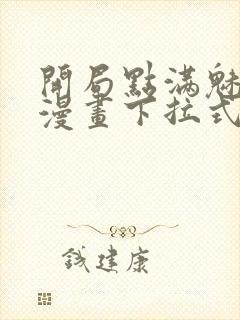 開局點滿魅
漫畫下拉式
錢建康